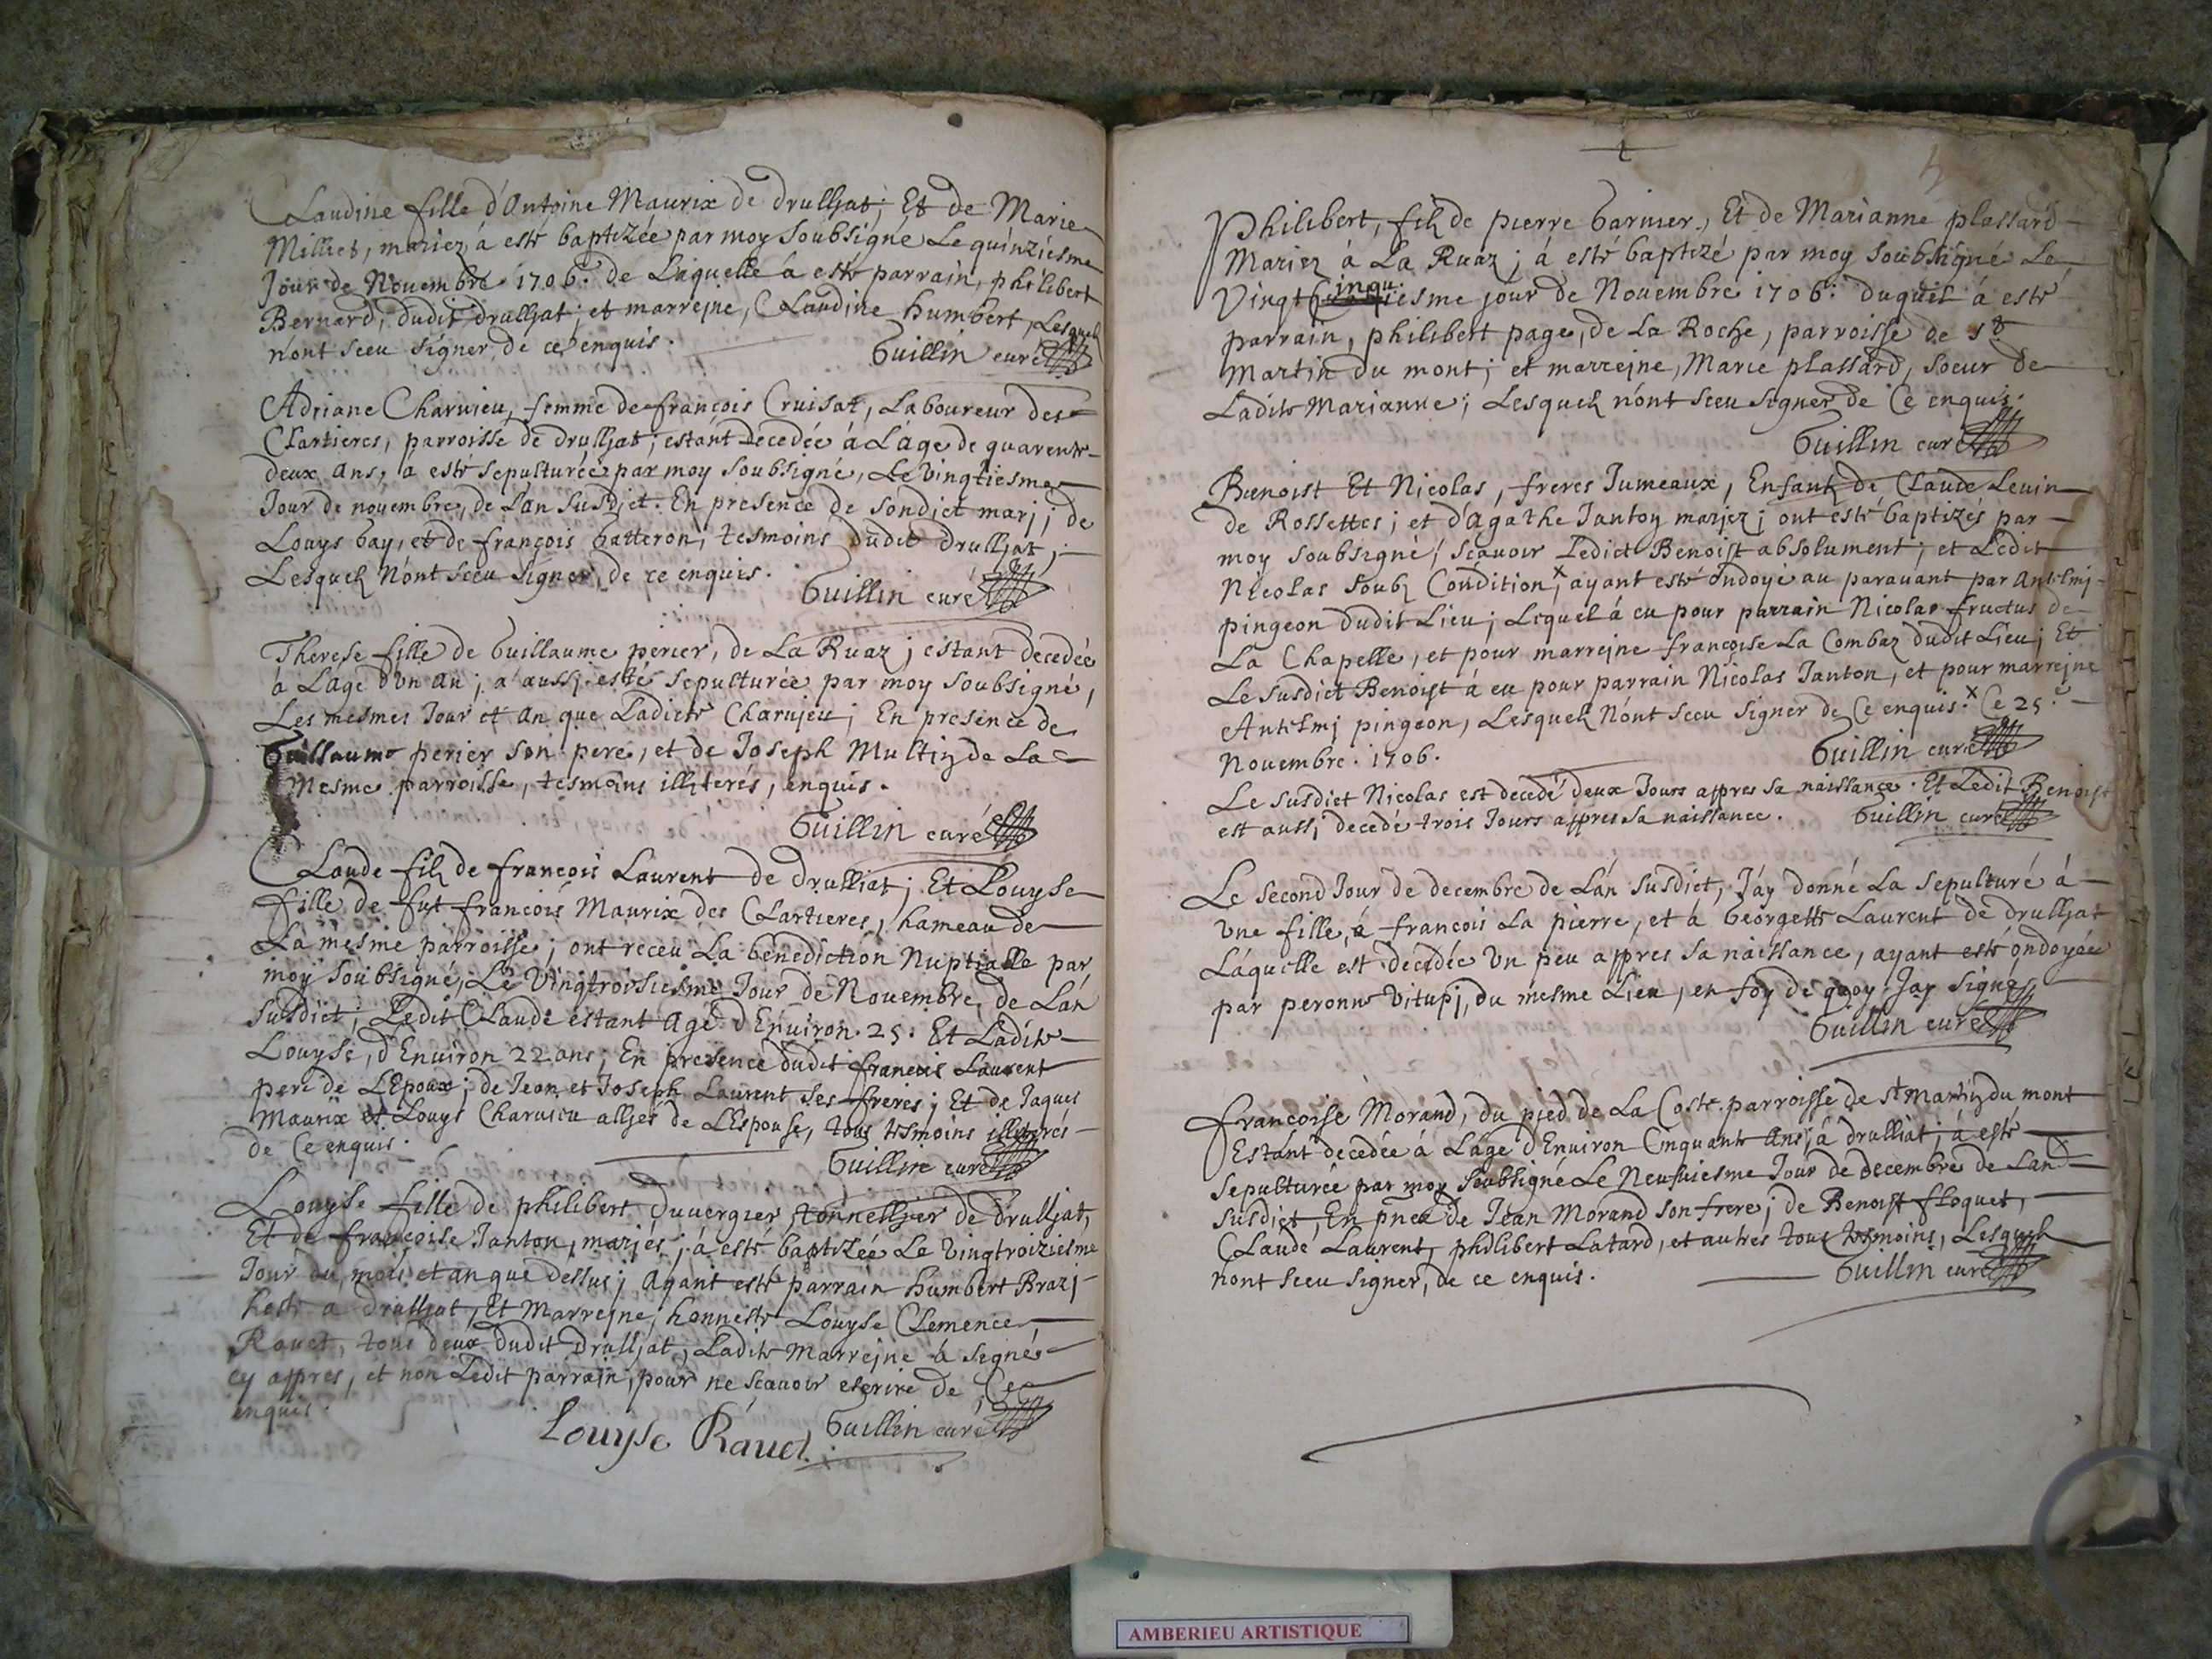 Claudine fille d'Antoine Maurix de drulljat; Et de Marie
Milliet, mariez á esté baptizée par moy Soubsigné Le quinziesme
Jour de Nouembre 1706. de Laquelle á esté parrain, philibert
Bernard, dudit drulljat; et marrejne, Claudine humbert, Lesquelz
n'ont sceu signer de ce enquis.
Guillin curé
Adriane Charuieu, femme de françois Cruisat, Laboureur des
Clartieres, parroisse de drulljat; estant decedée á Láge de quarente
deux ans, a esté sepulturée par moy Soubsigné, Le Vingtiesme
Jour de nouembre, de Lan Susdict. En presence de Sondict marj; de
Louys Gay, et de françois Gatteron, tesmoins dudit drulljat;
Lesquelz n'ont sceu signer, de ce enquis.
Guillin curé
Therese fille de Guillaume perier, de La Ruaz; estant decedée
á Láge d'Vn an; a aussj esté sepulturée par moy Soubsigné,
Les mesmes Jour et an que Ladicte Charujeu; En presence de
Guillaume perier son pere, et de Joseph Multin de La
Mesme parroisse, tesmoins illiterés, enquis.
Guillin curé
Claude filz de françois Laurent de drulliat; Et Louyse
fille de fut françois Maurix des Clartieres, hameau de
La mesme parroisse; ont receu La benediction Nuptialle par
moy Soubsigné, Le Vingtroisiesme Jour de Nouembre, de Lán
Susdict; Ledit Claude estant agé d'Enuiron. 25. Et Ladite
Louyse, d'Enuiron 22 ans; En presence dudit francois Laurent
pere de L'Epoux; de Jean et Joseph Laurent ses freres; Et de Jaques
Maurix et Louys Charuieu alljés de L'Espouse, tous tesmoins illiterés
de Ce enquis.
Guillin curé
Louyse fille de philibert Duuergier, tonnelljer de drulljat,
Et de françoise Janton, marjés; á esté baptizée Le Vingtroiziesme
Jour du mois et an que dessus; Ayant esté parrain humbert Brazj-
heste a drulljat, Et Marrejne, honneste Louyse Clemence
Rauet, tous deux dudit Drulljat; Ladite marrejne á signés
cy appres, et non Ledit parrain, pour ne scauoir escrire de Ce
enquis.
Louyse Rauet. Guillin curé
Philibert, filz de pierre Garnier, Et de Marianne plassard
Mariez á La Ruaz; á esté baptizé par moy Soubsigné Le
Vingt Cinquiesme jour de Nouembre 1706. duquel á esté
parrain, philibert page, de La Roche, parroisse de St
Martin du mont; et marrejne, Marie plassard, soeur de
Ladite Marianne; Lesquelz n'ont sceu signer de Ce enquis.
Guillin curé
Benoist Et Nicolas, freres Jumeaux, Enfantz de Claude Leuin
de Rossettes; et d'Agathe Janton marjez; ont esté baptizés par
moy Soubsigné; Scauoir Ledict Benoist absolument; et Ledit
Nicolas Soubz Condition x; ayant esté ondoyé au parauant par Antelmj
pingeon dudit Lieu; Lequel á eu pour parrain Nicolas fructus de
La Chapelle, et pour marrejne françoise La Combaz dudit Lieu; Et
Le susdict Benoist á eu pour parrain Nicolas Janton, et pour marrejne
Antelmj pingeon, Lesquelz n'ont sceu signer de Ce enquis. x Ce 25.e
Nouembre. 1706.
Guillin curé
Le susdict Nicolas est decedé deux Jours appres sa naissance. Et Ledit Benoist
est aussj decedé trois Jours appres sa naissance. Guillin curé
Le Second Jour de decembre de Lán Susdict, J'áy donné La sepulturé á
Vne fille, á françois La pierre, et á Georgette Laurent de drulljat
Láquelle est decedée Vn peu appres sa naissance, ayant esté ondoyée
par peronne Vitupj, du mesme Lieu, en foy de quoy Jay signé
Guillin curé
francoise Morand, du pied de La Coste parroisse de St Martin du mont
Estánt decedée á Láge d'Enuiron Cinquante Ans, á drulliat; á esté
Sepulturée par moy Soubsigné Le Neufuiesme Jour de decembre de Lan
susdict, En pnce de Jean Morand son frere; de Benoist floquet,
Claude Laurent, philibert Latard, et autres tous tesmoins, Lesquelz
nont sceu signer, de ce enquis.
Guillin curé
AMBERIEU ARTISTIQUE